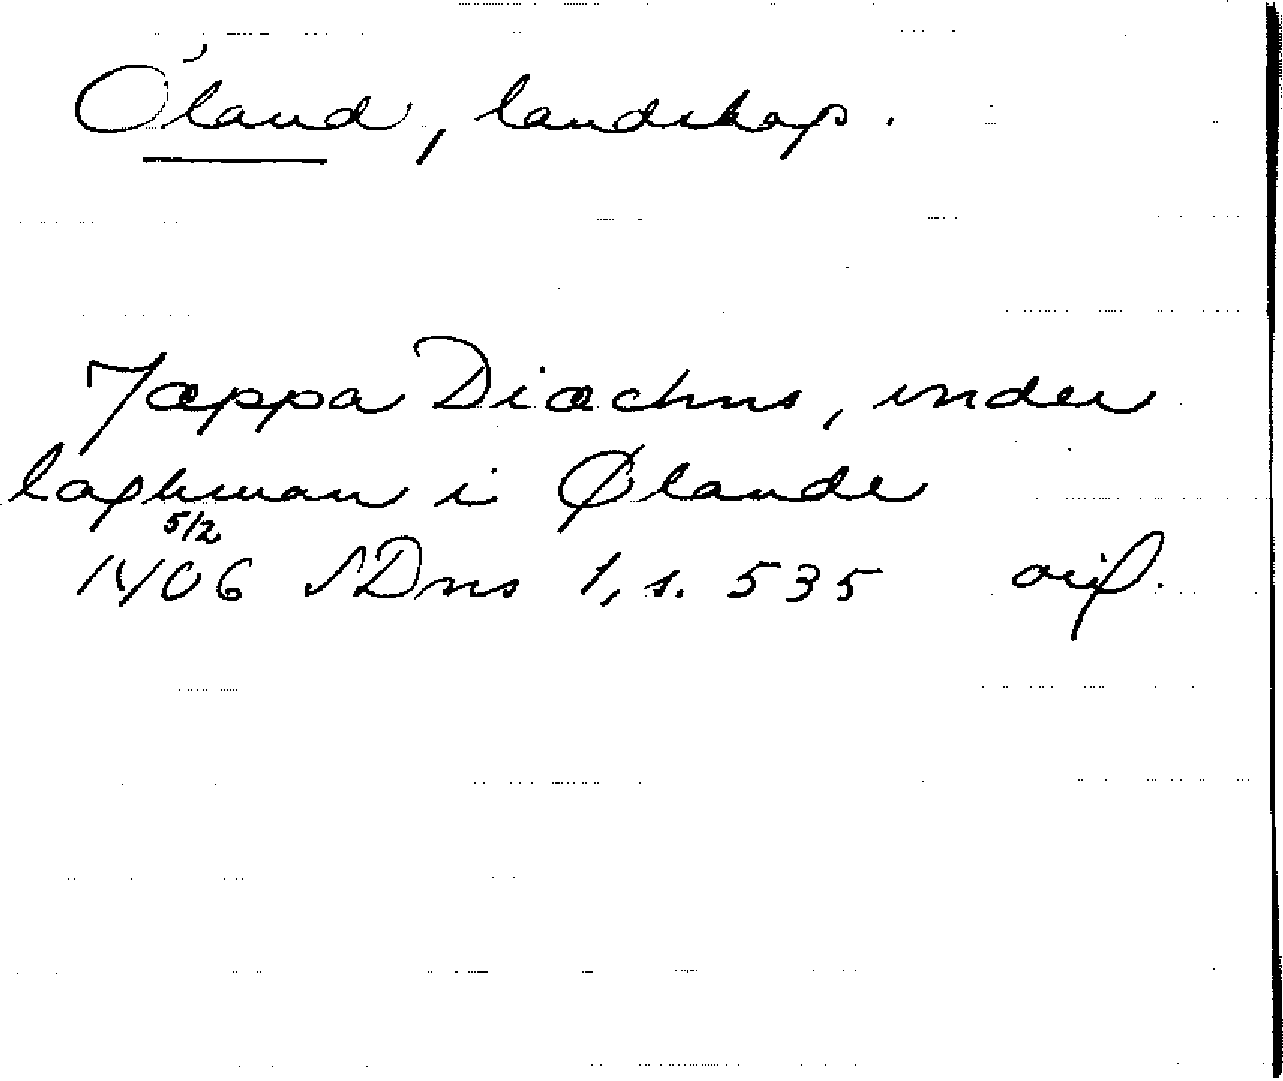 Öland, landskap.
Jæppa Diæchns, under
laghman i Ølande
5/2
1406 SDns 1, s. 535 orig.